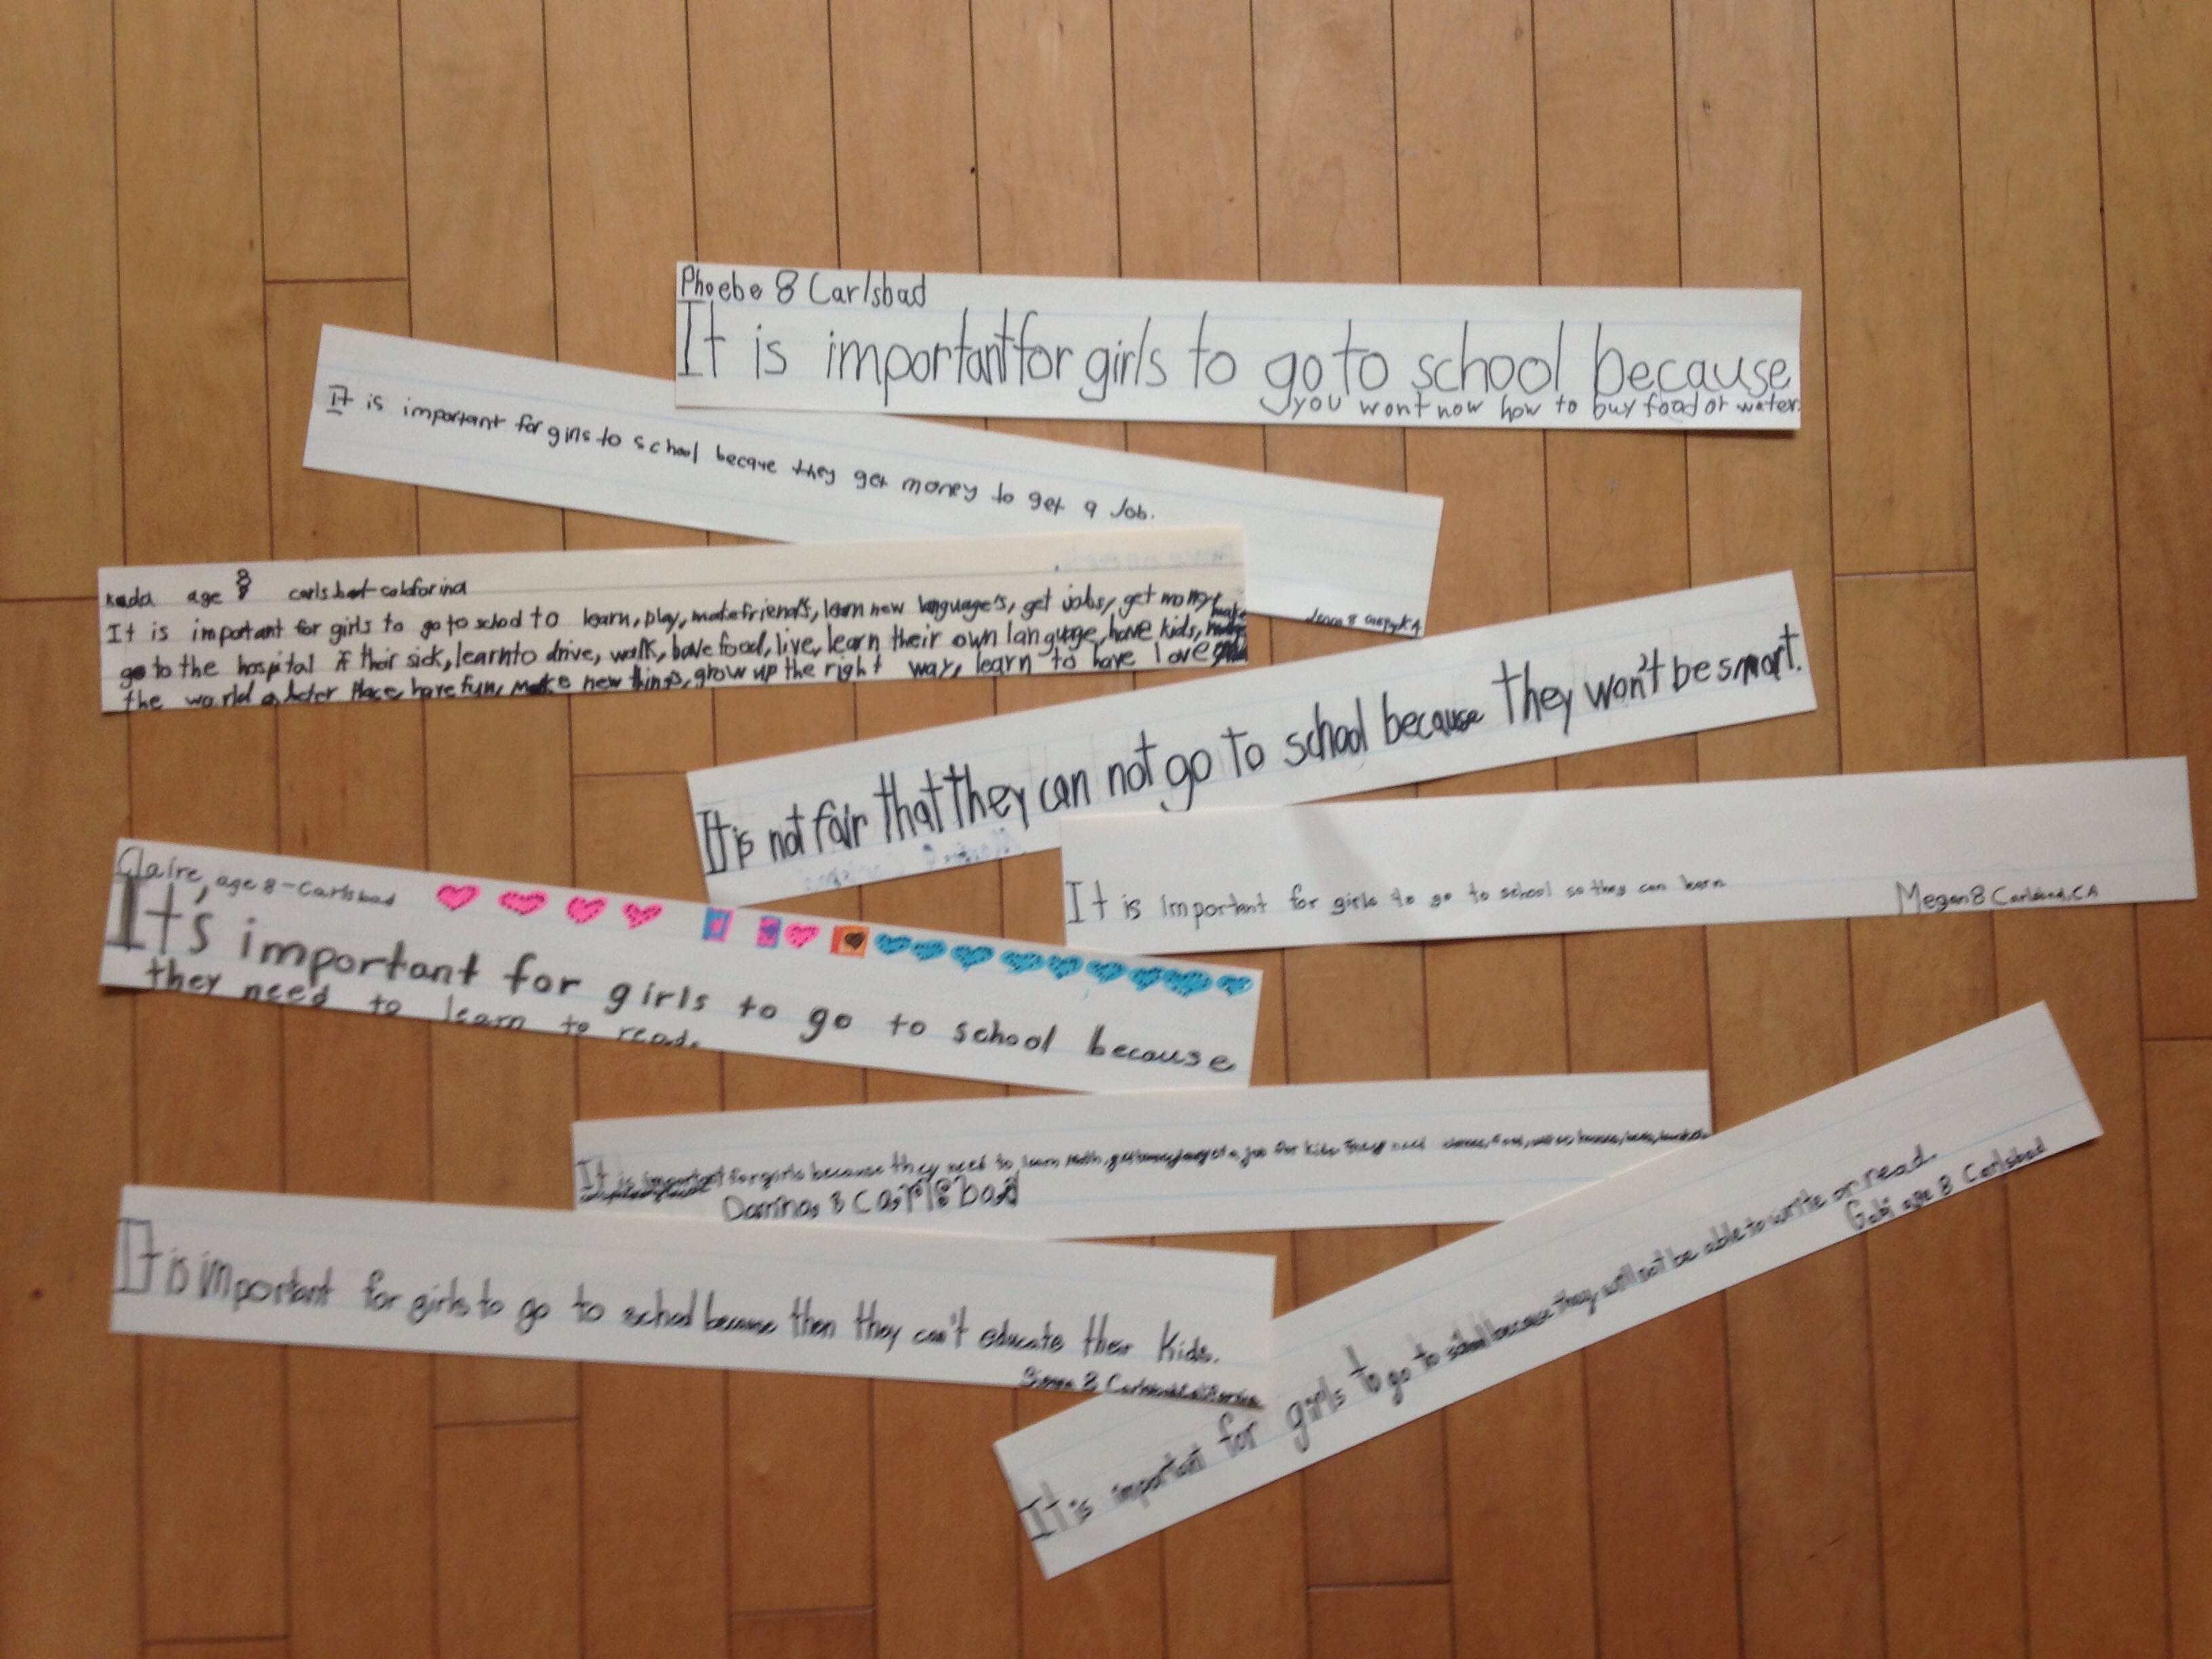 Phoebe 8 Carlsbad
It is important for girls to go to school because
you wont now how to buy food or water.
It is important for girls to school becaue they get money to get a Job.
Jenna 8
kada age 8 carlsbat calaforina
It is important for girls to go to school to learn, play, make friends, learn new language's, get jobs, get money,
go to the hospital if their sick, learn to drive, walk, bave food, live, learn their own language, have kids, make
the world a beter place, have fun, make new things, grow up the right way, learn to have love
It is not fair that they can not go to school because they won't be smart.
It is important for girls to go to school so they can learn
Megan 8 Carlsbad, CA
Claire, age 8 - Carlsbad
It's important for girls to go to school because
they need to learn to read.
It is important for girls because they need to learn math, get a job for kids they need
8 Carlsbad
It is important for girls to go to school because then they can't educate their kids.
8 Carlsbad California
It is important for girls to go to school because they will not be able to write or read.
Gabi age 8 Carlsbad